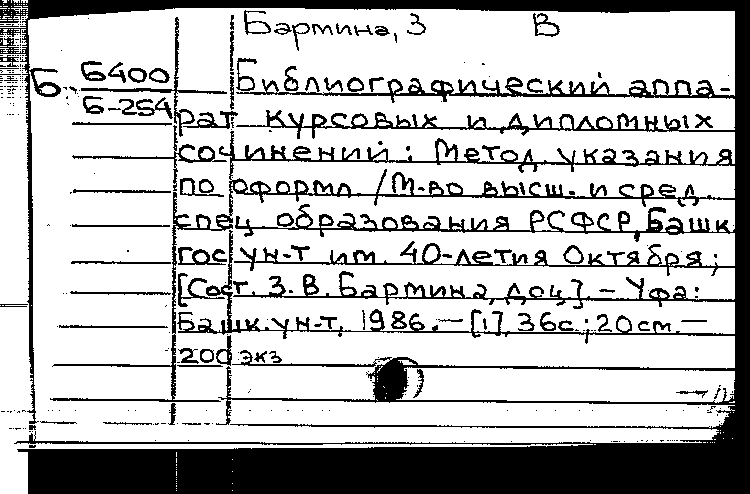 Бармина, З В
Б Б400 Библиографический аппа-
Б-254 рат курсовых и дипломных
сочинений: Метод. указания
по оформл. / М-во высш. и сред.
спец образования РСФСР, Башк
гос ун-т им. 40-летия Октября;
[Сост. З. В. Бармина, доц]. - Уфа:
Башк. ун-т, 1986. — [1], 36с.; 20см. —
200 экз